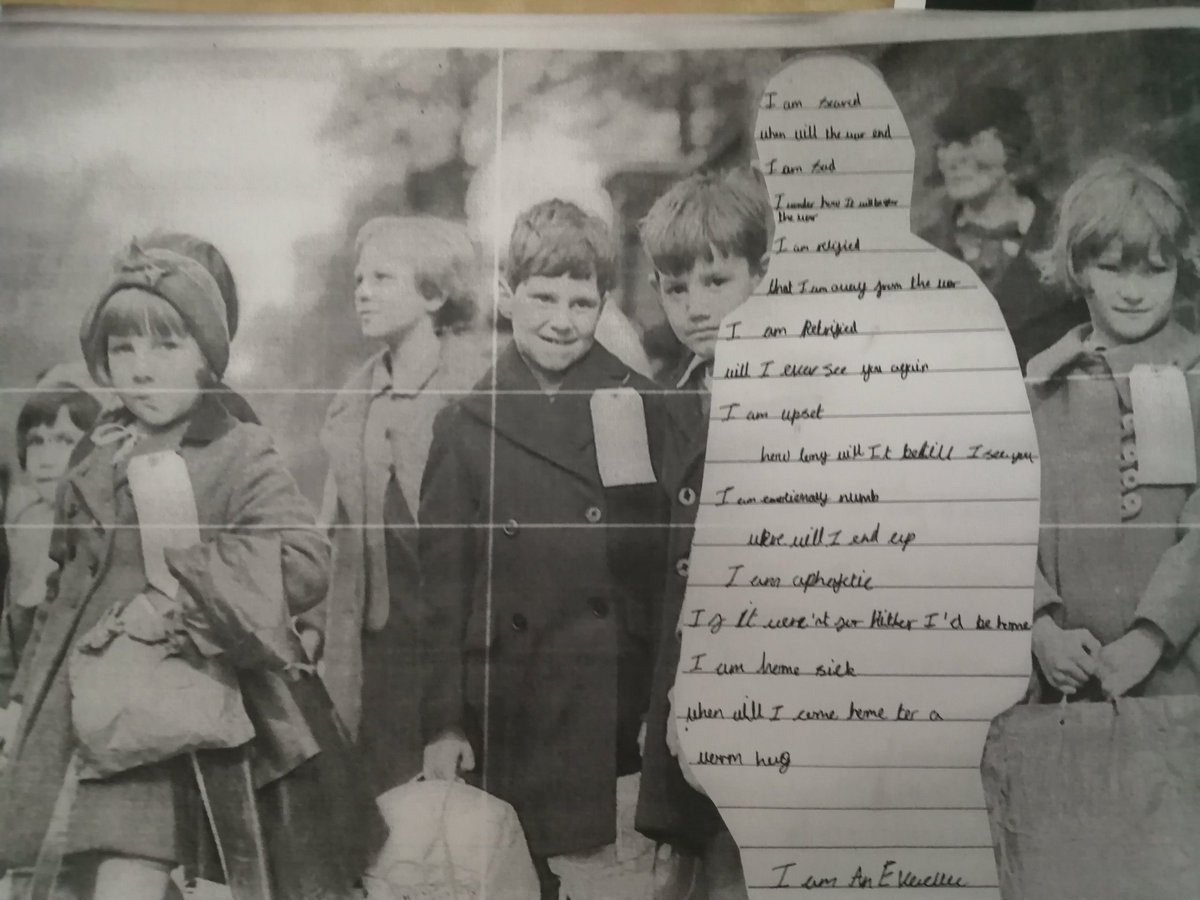 I am scared
when will the war end
I am sad
I wonder how It will be
the war
I am religied
that I am away from the war
I am Retrified
will I ever see you again
I am upset
how long will It be till I see you
I am emotionally numb
were will I end up
I am aphatetic
If It were'nt for Hitler I'd be home
I am home sick
when will I come home for a
worm hug
I am An Evacuee